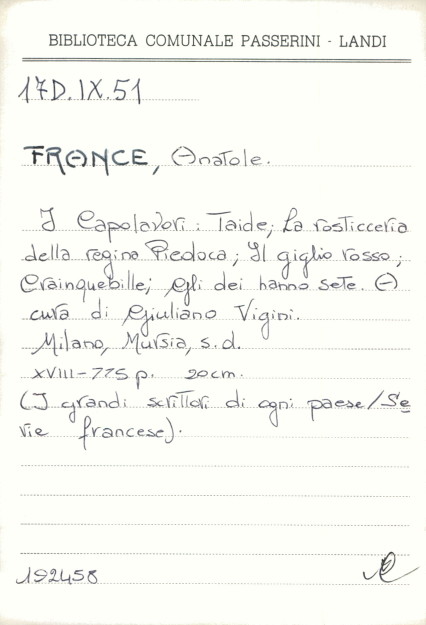 BIBLIOTECA COMUNALE PASSERINI - LANDI
17D.IX.51
FRANCE, Anatole.
I Capolavori: Taide; La rosticceria
della regina Piedoca; Il giglio rosso;
Crainquebille; Gli dei hanno sete. A
cura di Giuliano Vigini.
Milano, Mursia, s.d.
XVIII-775 p. 20 cm.
(I grandi scrittori di ogni paese/Se
rie francese).
192458